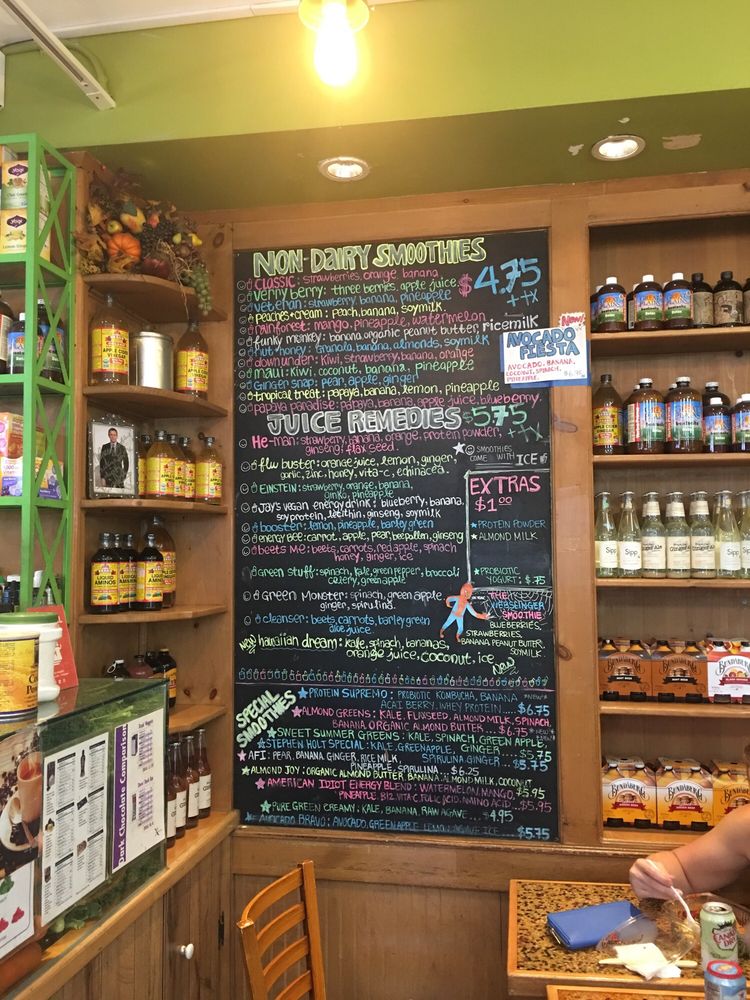 NON-DAIRY SMOOTHIES
$4.75
+tx
CLASSIC: strawberries, orange, banana
Verry berry: three berries, apple juice
veteran: strawberry, banana, pineapple
peaches + cream: peach, banana, soymilk
rainforest: mango, pineapple, watermelon
funky monkey: banana organic peanut butter, ricemilk
nut + honey: Granola, banana, almonds, soymilk
down under: kiwi, strawberry, banana, orange
maui: kiwi, coconut, banana, pineapple
Ginger snap: pear, apple, ginger
tropical treat: papaya, banana, lemon, pineapple
papaya paradise: papaya, banana, apple juice, blueberry
New!
AVOCADO
FIESTA
AVOCADO, BANANA,
COCONUT, SPINACH,
PINEAPPLE $6.75
JUICE REMEDIES $5.75
+tx
He-man: strawberry, banana, orange, protein powder,
ginseng, flax seed.
flu buster: orange juice, lemon, ginger,
garlic, zinc, honey, vita-c, echinacea.
EINSTEIN: strawberry, orange, banana,
ginko, pineapple
Jay's vegan energy drink: blueberry, banana,
soy protein, lecithin, ginseng, soymilk
booster: lemon, pineapple, barley green
energy bee: carrot, apple, pear, bee pollen, ginseng
beets me: beets, carrots, red apple, spinach
honey, ginger, ice
green stuff: spinach, kale, green pepper, broccoli
celery, green apple
Green Monster: spinach, green apple,
ginger, spirulina.
cleanser: beets, carrots, barley green
aloe juice.
new hawaiian dream: kale, spinach, bananas,
orange juice, coconut, ice
SMOOTHIES
COME WITH ICE
EXTRAS
$1.00
PROTEIN POWDER
ALMOND MILK
PROBIOTIC
YOGURT: $.75
THE
WEBSLINGER
SMOOTHIE
BLUEBERRIES,
STRAWBERRIES,
BANANA, PEANUT BUTTER,
SOYMILK
New
SPECIAL
SMOOTHIES
PROTEIN SUPREMO: PROBIOTIC KOMBUCHA, BANANA
ACAI BERRY, WHEY PROTEIN.... $6.75
ALMOND GREENS: KALE, FLAXSEED, ALMOND MILK, SPINACH,
BANANA ORGANIC ALMOND BUTTER... $6.75
SWEET SUMMER GREENS: KALE, SPINACH, GREEN APPLE,
GINGER $5.75
STEPHEN HOLT SPECIAL: KALE, GREEN APPLE,
SPIRULINA, GINGER $5.75
AFI: PEAR, BANANA, GINGER, RICE MILK,
PINEAPPLE, SPIRULINA... $6.25
ALMOND JOY: ORGANIC ALMOND BUTTER, BANANA, ALMOND MILK, COCONUT
AMERICAN IDIOT ENERGY BLEND: WATERMELON, MANGO, $5.95
PINEAPPLE B12, VIT C, FOLIC ACID, AMINO ACID... $5.95
PURE GREEN CREAMY: KALE, BANANA, RAW AGAVE... $4.95
AVOCADO BRAVO: AVOCADO, GREEN APPLE LEMON, AGAVE ICE $5.75
yogi
yogi
Lemon Ginger
LIQUID
AMINOS
LIQUID
AMINOS
Sipp
Sipp
BUNDABERG
BUNDABERG
BUNDABERG
BUNDABERG
Dark Chocolate Comparison
CANADA
DRY